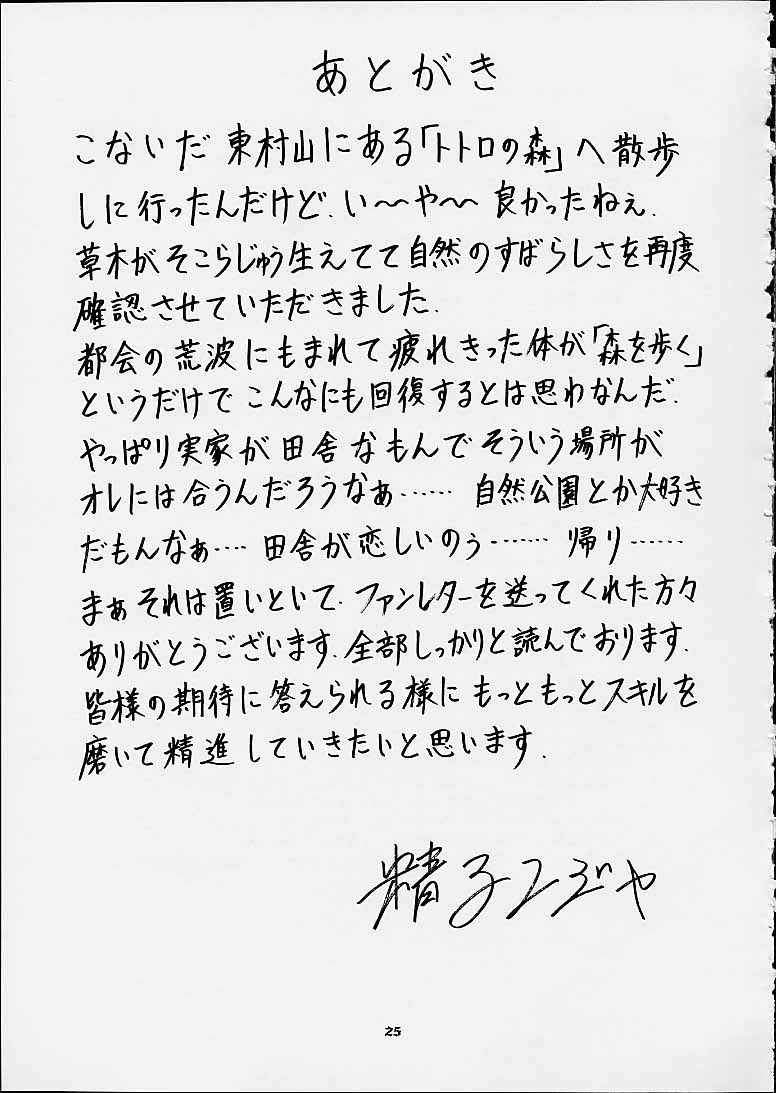 あとがき
こないだ東村山にある「トトロの森」へ散歩
しに行ったんだけど、い〜や〜良かったねぇ.
草木がそこらじゅう生えてて自然のすばらしさを再度
確認させていただきました.
都会の荒波にもまれて疲れきった体が「森を歩く」
というだけでこんなにも回復するとは思わなんだ.
やっぱり実家が田舎なもんでそういう場所が
オレには合うんだろうなぁ…… 自然公園とか大好き
だもんなぁ…. 田舎が恋しいのぅ…… 帰り……
まぁそれは置いといて、ファンレターを送ってくれた方々
ありがとうございます. 全部しっかりと読んでおります.
皆様の期待に答えられる様にもっともっとスキルを
磨いて精進していきたいと思います.
25